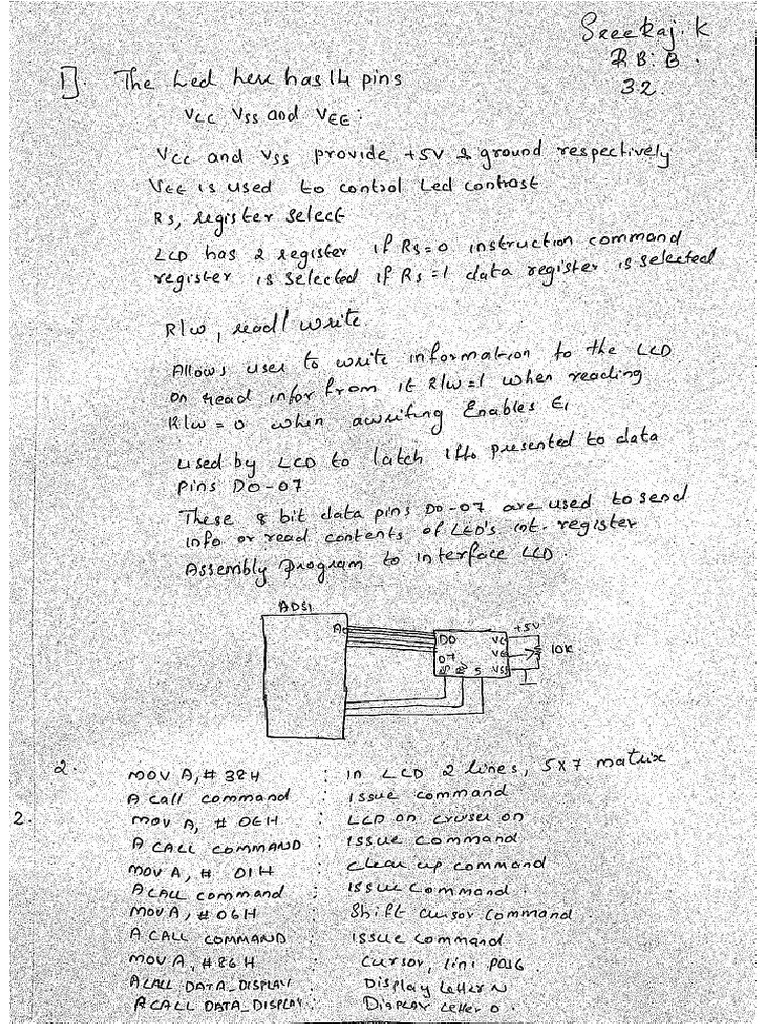 Sreekaj.k
RB:B.
32.
1]. The Led here has 14 pins
VCC VSS and VEE:
Vcc and Vss provide +5V & ground respectively
VEE is used to control Led contrast
Rs, register select
LCD has 2 register if Rs=0 instruction command
register is selected if Rs=1 data register is selected
R/w, read/write
Allows user to write information to the LCD
on read infor from it R/w=1 when reading
R/w=0 when awriting Enables E,
used by LCD to latch presented to data
pins D0-07
These 8 bit data pins D0-07 are used to send
info or read contents of LED's int. register
Assembly program to interface LCD.
AD51
A
D0
07
VC
VE
VSS
+5V
10K
2. MOV A, # 38H : in LCD 2 lines, 5x7 matrix
A call command : issue command
2. mov A, # 0EH : LCD on cruser on
A CALL COMMAND : issue command
mov A, # 01H : clear up command
ACALL command : issue command.
Mov A, # 06H : Shift cursor command.
A CALL COMMAND : issue command
MOV A, #86H : cursor, lini pos6
ACALL DATA_DISPLAY : Display letter N
ACALL DATA_DISPLAY : Display letter o.